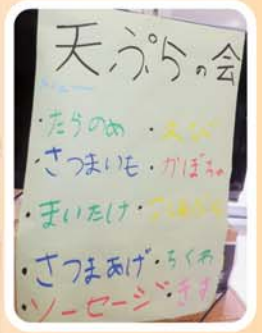 天ぷらの会
・たらのめ ・えび
・さつまいも ・かぼちゃ
・まいたけ ・
・さつまあげ ・ちくわ
・ソーセージ ・きす